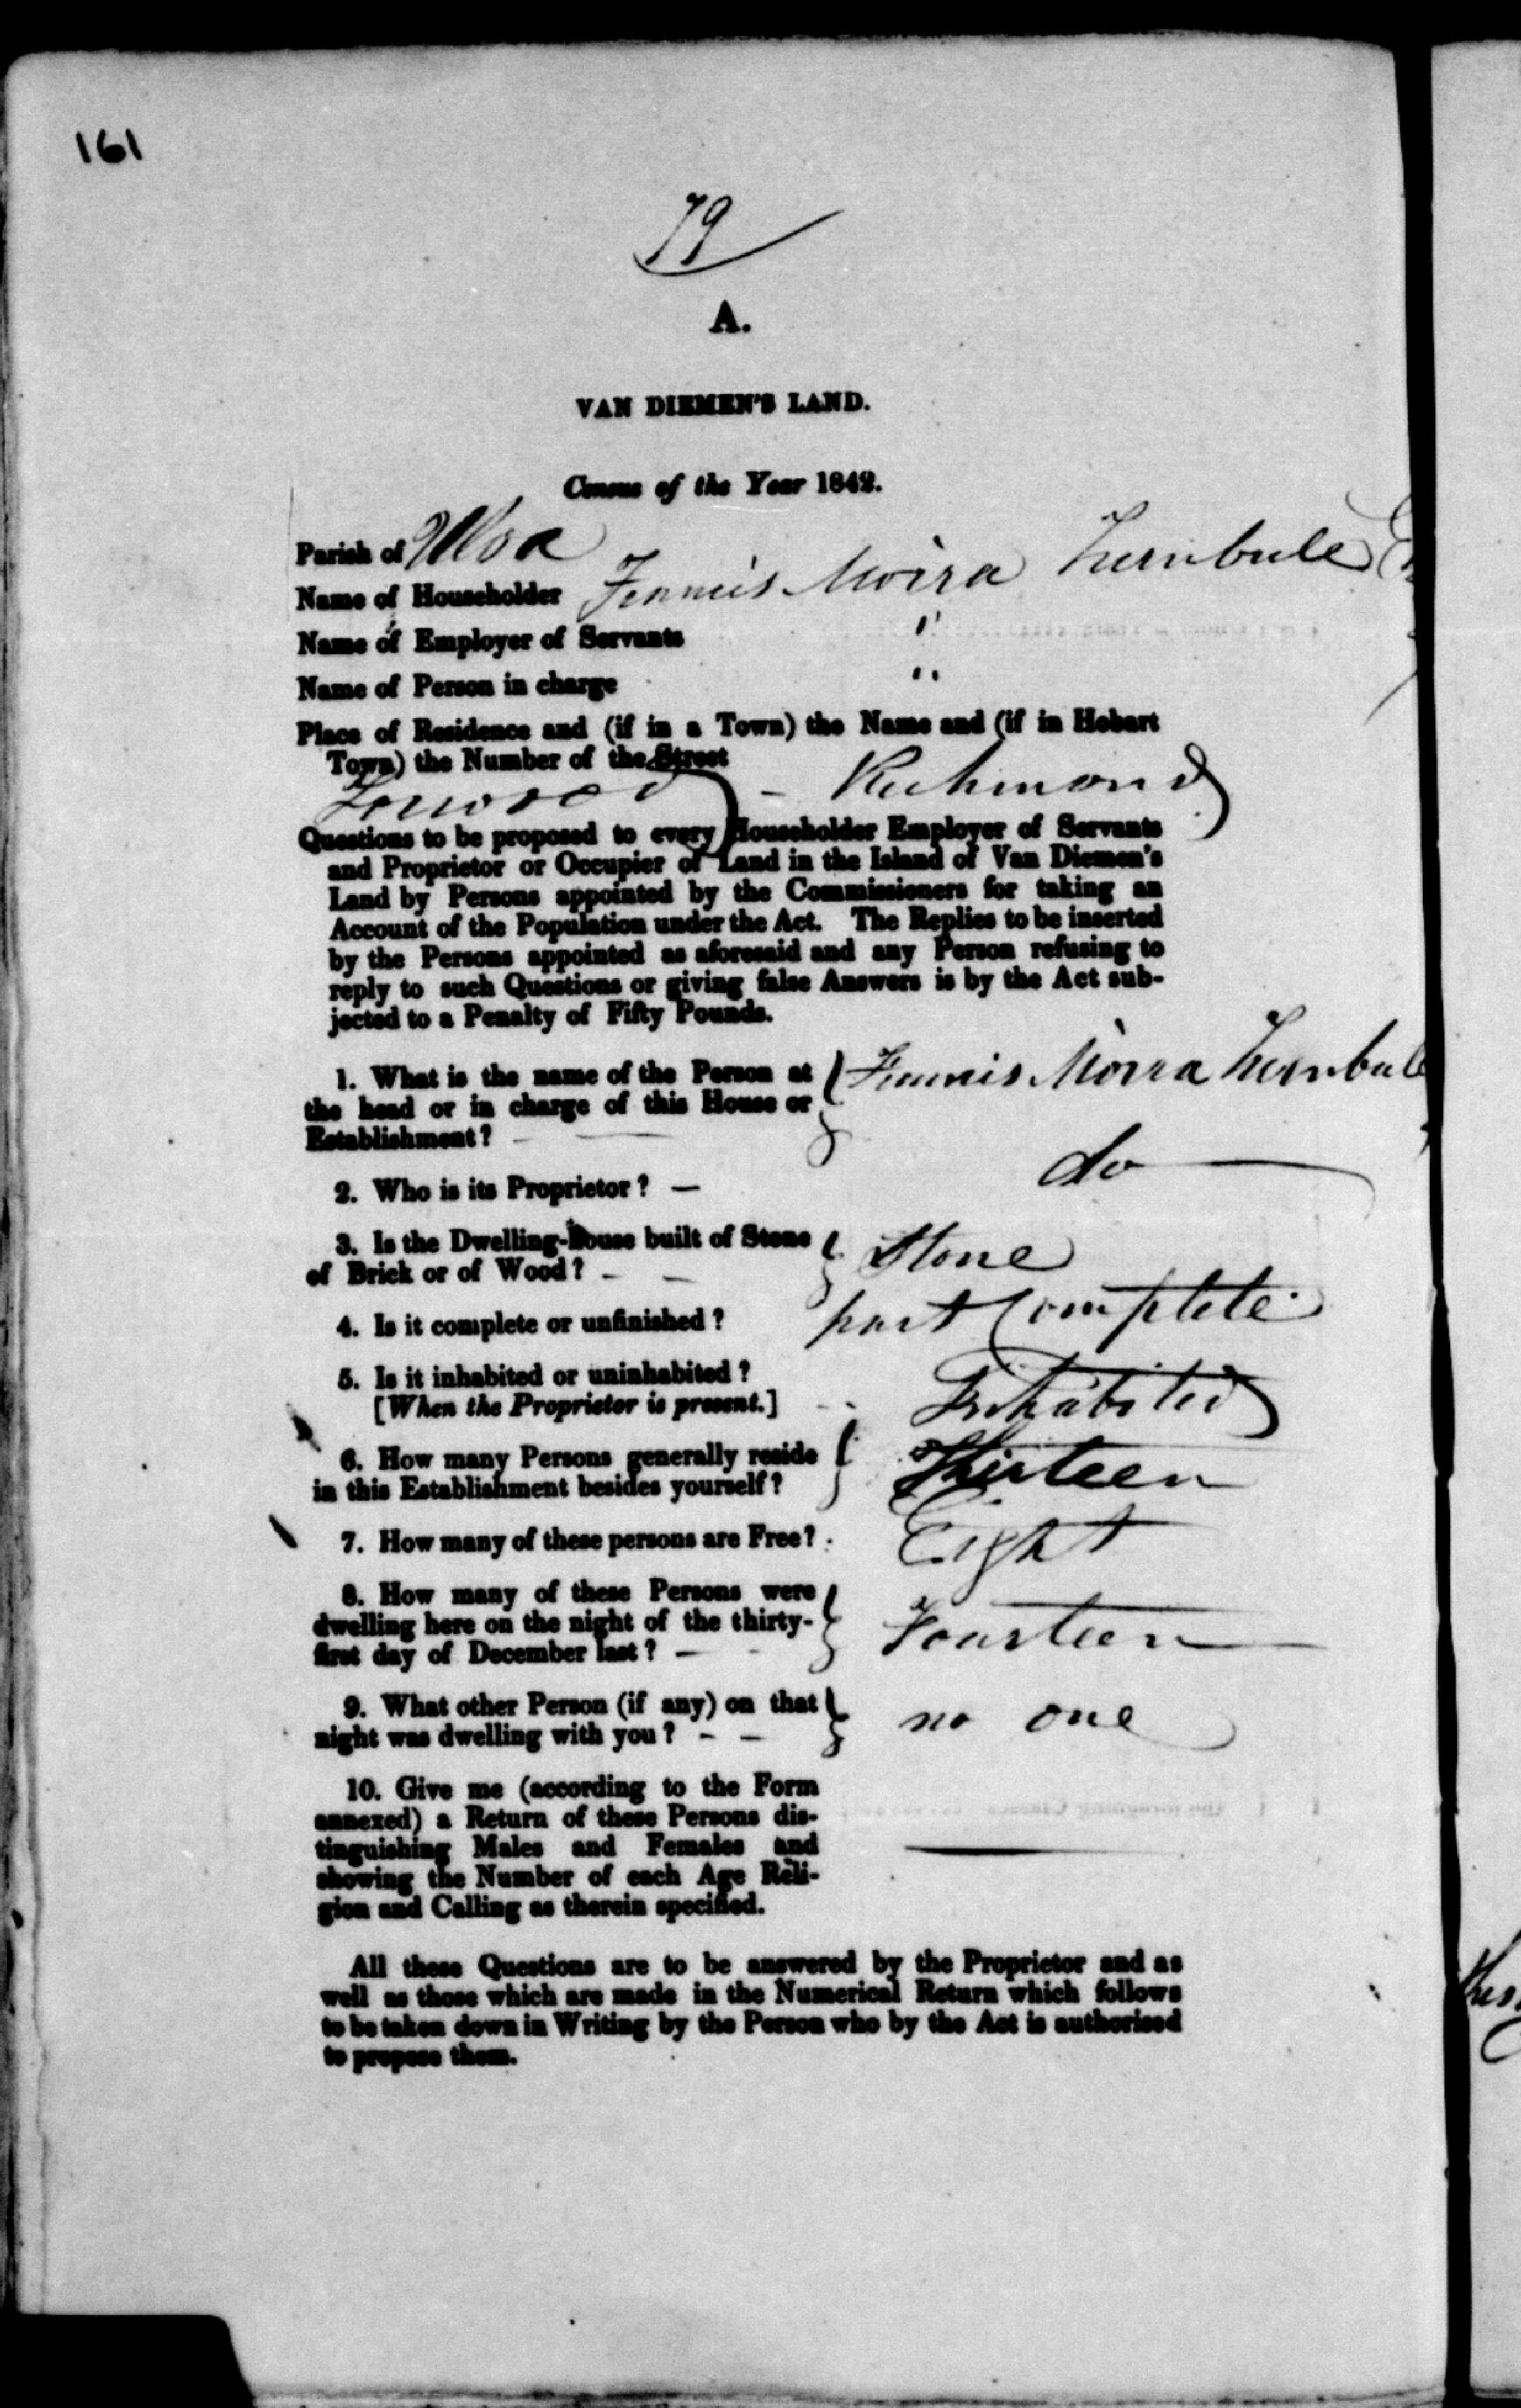 161
79
A.
VAN DIEMEN'S LAND.
Census of the Year 1842.
Parish of Ulva
Name of Householder Francis Moira Turnbull
Name of Employer of Servants "
Name of Person in charge "
Place of Residence and (if in a Town) the Name and (if in Hobart
Town) the Number of the Street
- Richmond
Questions to be proposed to every Householder Employer of Servants
and Proprietor or Occupier of Land in the Island of Van Diemen's
Land by Persons appointed by the Commissioners for taking an
Account of the Population under the Act. The Replies to be inserted
by the Persons appointed as aforesaid and any Person refusing to
reply to such Questions or giving false Answers is by the Act sub-
jected to a Penalty of Fifty Pounds.
1. What is the name of the Person at
the head or in charge of this House or
Establishment?
Francis Moira Turnbull
2. Who is its Proprietor? — do
3. Is the Dwelling-House built of Stone
of Brick or of Wood? - —
Stone
4. Is it complete or unfinished? part Complete
5. Is it inhabited or uninhabited?
[When the Proprietor is present.] - - Inhabited
6. How many Persons generally reside
in this Establishment besides yourself?
Thirteen
7. How many of these persons are Free? Eight
8. How many of these Persons were
dwelling here on the night of the thirty-
first day of December last? — -
Fourteen
9. What other Person (if any) on that
night was dwelling with you? - —
no one
10. Give me (according to the Form
annexed) a Return of these Persons dis-
tinguishing Males and Females and
showing the Number of each Age Reli-
gion and Calling as therein specified.
All these Questions are to be answered by the Proprietor and as
well as those which are made in the Numerical Return which follows
to be taken down in Writing by the Person who by the Act is authorised
to propose them.